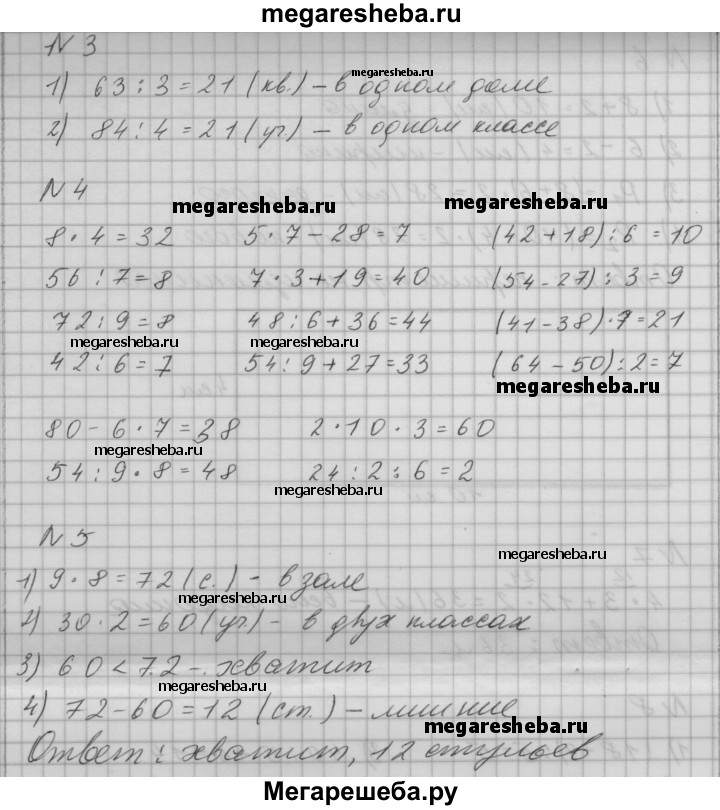 megaresheba.ru
N 3
1) 63 : 3 = 21 (кв.) – в одном доме
megaresheba.ru
2) 84 : 4 = 21 (уч) – в одном классе
N 4
megaresheba.ru megaresheba.ru
8 · 4 = 32 5 · 7 – 28 = 7 (42 + 18) : 6 = 10
56 : 7 = 8 7 · 3 + 19 = 40 (54 – 27) : 3 = 9
72 : 9 = 8 48 : 6 + 36 = 44 (41 – 38) · 7 = 21
megaresheba.ru megaresheba.ru
42 : 6 = 7 54 : 9 + 27 = 33 (64 – 50) : 2 = 7
megaresheba.ru
80 – 6 · 7 = 38 2 · 10 · 3 = 60
megaresheba.ru
54 : 9 · 8 = 48 24 : 2 : 6 = 2
megaresheba.ru
N 5
megaresheba.ru
1) 9 · 8 = 72 (с.) – в зале
megaresheba.ru
2) 30 · 2 = 60 (уч) – в двух классах
3) 60 < 72 – хватит
megaresheba.ru
4) 72 – 60 = 12 (ст.) – лишние
megaresheba.ru
Ответ : хватит, 12 стульев
Мегарешеба.ру